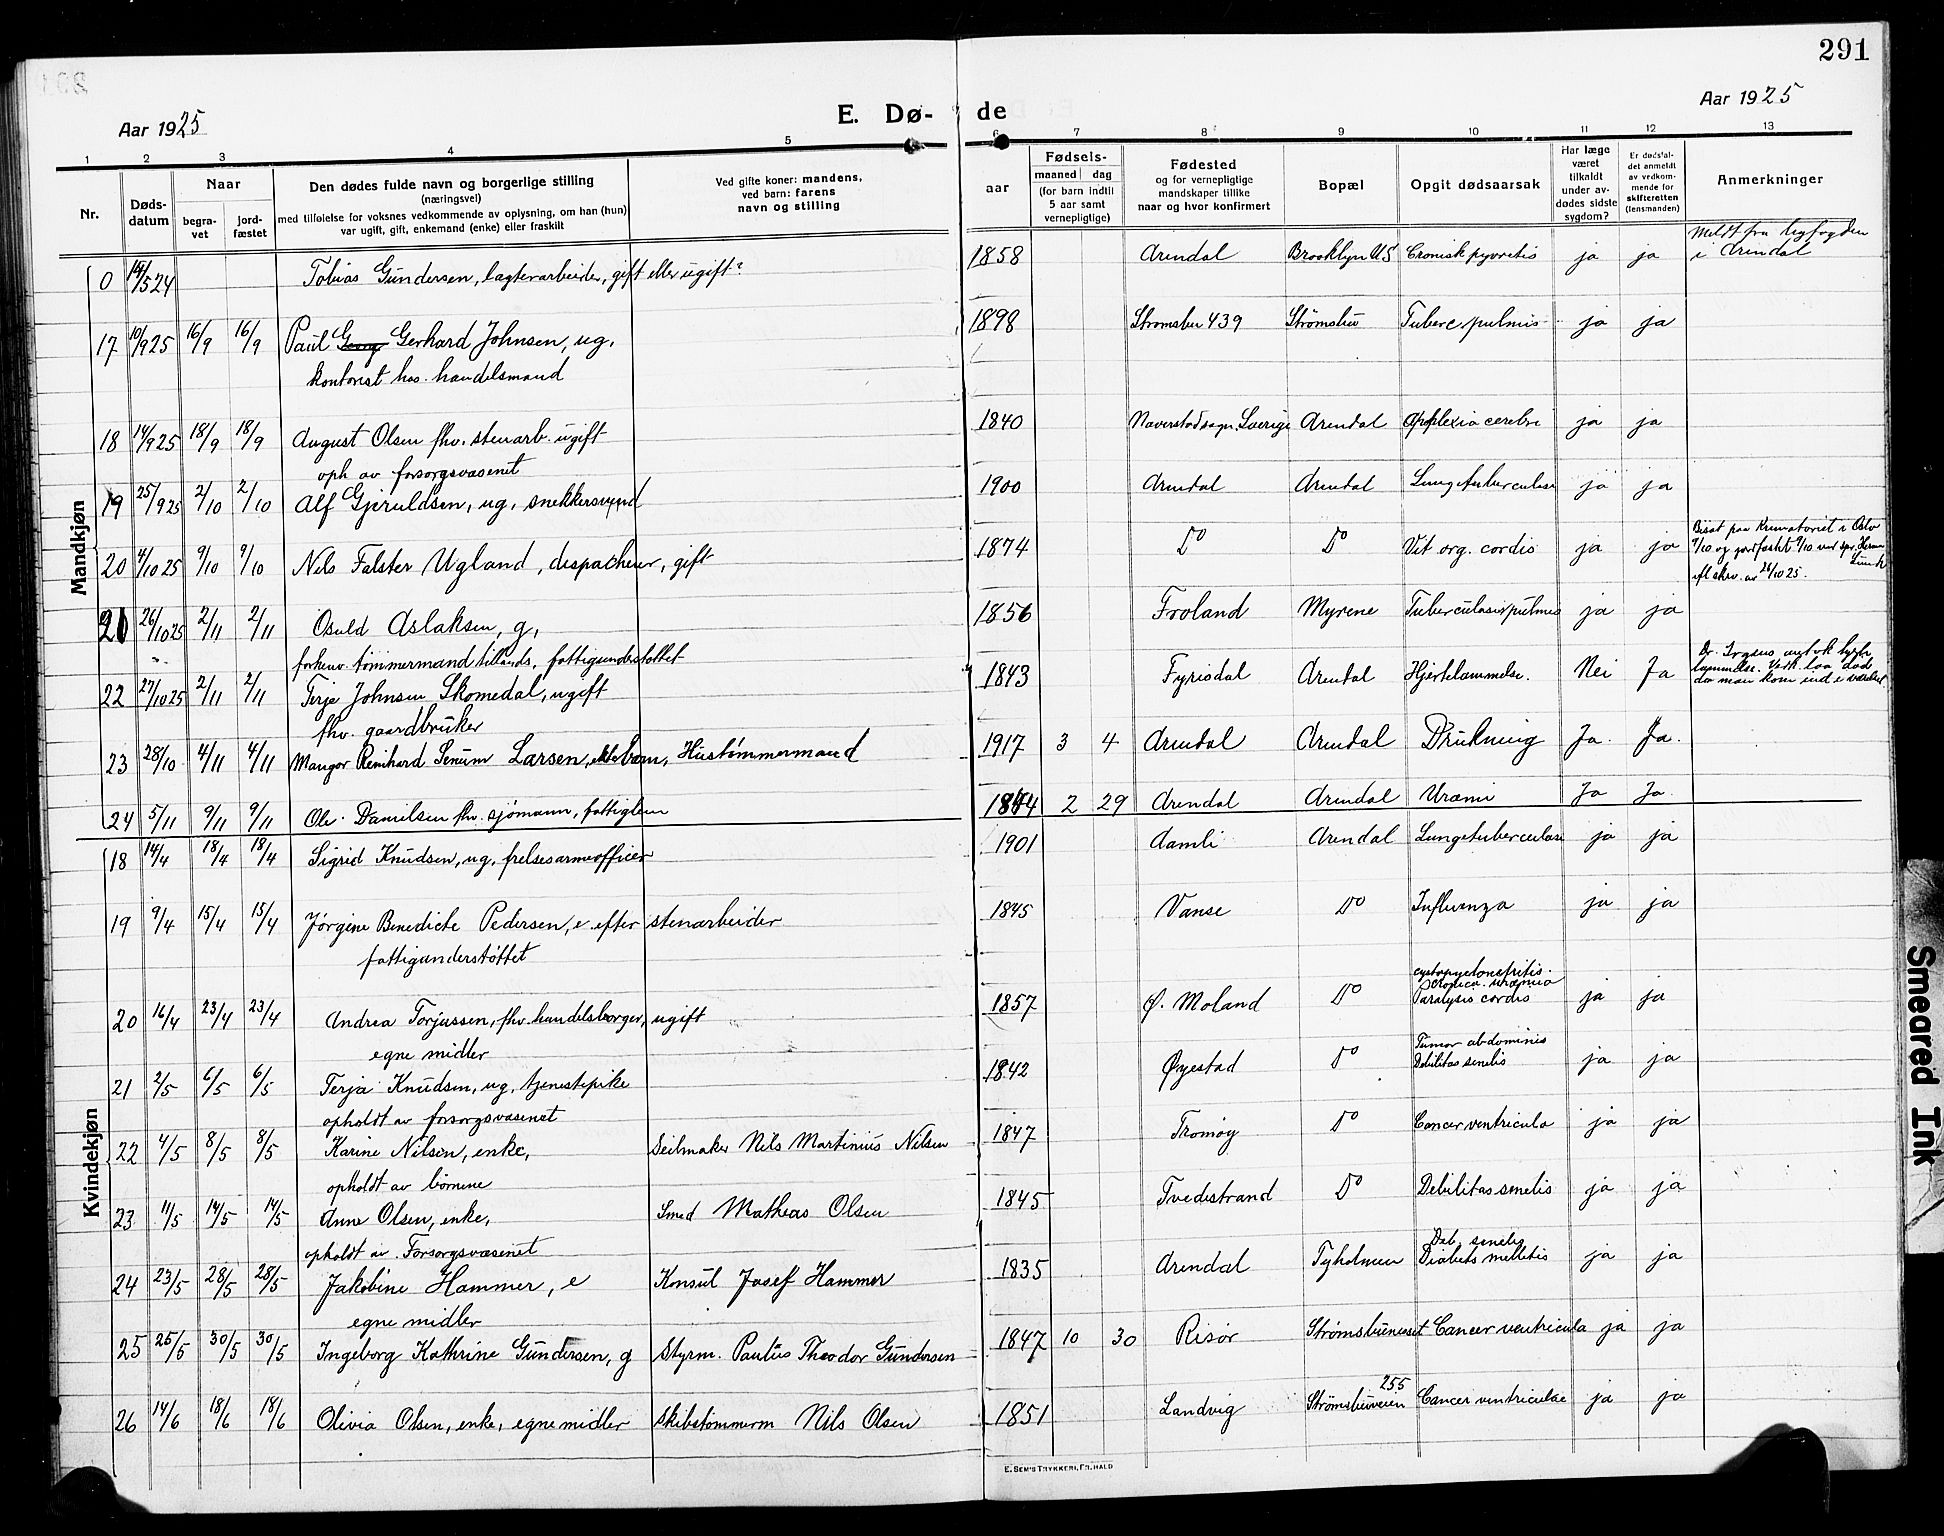 291
Aar 1925
E. Dø- de
Aar 1925
1 2 3 4 5 6 7 8 9 10 11 12 13
Nr.
Døds-
datum
Naar
begra-
vet
jord-
fæstet
Den dødes fulde navn og borgerlige stilling
(næringsvei)
med tilføielse for voksnes vedkommende av oplysning, om han (hun)
var ugift, gift, enkemand (enke) eller fraskilt
Ved gifte koner: mandens,
ved barn: farens
navn og stilling
Fødsels-
aar
maaned dag
(for barn indtil
5 aar samt
vernepligtige)
Fødested
og for vernepligtige
mandskaper tillike
naar og hvor konfirmert
Bopæl
Opgit dødsaarsak
Har læge
været
tilkaldt
under av-
dødes sidste
sygdom?
Er dødsfal-
det anmeldt
av vedkom-
mende for
skifteretten
(lensmanden)
Anmerkninger
Mandkjøn
0 14/5 24 Tobias Gundersen, lagterarbeider, gift eller ugift? 1858 Arendal Brooklyn U.S Cronisk pyoretis ja ja Meldt fra byfogden
i Arendal
17 10/9 25 16/9 16/9 Paul Georg Gerhard Johnsen, ug, 1898 Strømsbu 439 Strømsbu Tuberc pulmis ja ja
kontorist hos. handelsmand
18 14/9 25 18/9 18/9 August Olsen fhv. stenarb. ugift 1840 Naverstadsogn, Sverige Arendal Apoplexia cerebri ja ja
oph av forsorgsvæsenet
19 25/9 25 2/10 2/10 Alf Gjeruldsen, ug, snekkersvend 1900 Arendal Arendal Lungetuberculose ja ja
20 4/10 25 9/10 9/10 Nils Falster Ugland, dispacheur, gift 1874 Do Do Vit org. cordis ja ja Bisat paa Krematoriet i Oslo
9/10 og jordfæstet 9/10 ved spr. Herman
Lunde
efl skrv. av 26/10 25.
21 26/10 25 2/11 2/11 Osuld Aslaksen, g, 1856 Froland Myrene Tuberculosis pulmis ja ja
forhenv. tømmermand tillands, fattigunderstøttet
22 27/10 25 2/11 2/11 Terje Johnsen Skomedal, ugift 1843 Fyrisdal Arendal Hjertelammelse. Nei Ja Dr. antok hjerte
lammelse. Vedk. laa død
da man kom ind i værelset
fhv. gaardbruker
23 28/10 4/11 4/11 Mangor Reinhard Senum Larsen, ekte barn, Hustømmermand 1917 3 4 Arendal Arendal Drukning Ja. Ja.
24 5/11 9/11 9/11 Ole Danielsen fhv. sjømann, fattiglem 1844 2 29 Arendal Arendal Uræmi Ja Ja.
Kvindekjøn
18 14/4 18/4 18/4 Sigrid Knudsen, ug, frelsesarmeofficer 1901 Aamli Arendal Lungetuberculose ja ja
19 9/4 15/4 15/4 Jørgine Benedicte Pedersen, e. efter stenarbeider 1845 Vanse Do Influenza ja ja
fattigunderstøttet
20 16/4 23/4 23/4 Andrea Torjussen, fhv. handelsborger, ugift 1857 Ø. Moland Do cystopyelonefritis.
uræmia
Paralysis cordis ja ja
egne midler
21 2/5 6/5 6/5 Terja Knudsen, ug, tjenestepike 1842 Øyestad Do Tumor abdominis
Debilitas senelis ja ja
opholdt av forsorgsvæsenet
22 4/5 8/5 8/5 Karine Nilsen, enke, Seilmaker Nils Martinius Nilsen 1847 Tromøy Do Cancer ventricula ja ja
opholdt av børnene
23 11/5 14/5 14/5 Anne Olsen, enke, Smed Mathias Olsen 1845 Tvedestrand Do Debilitas senelis ja ja
opholdt av Forsorgsvæsenet
24 23/5 28/5 28/5 Jakobine Hammer, e Konsul Josef Hammer 1835 Arendal Tyholmen Deb. senelis
Diabets melletis ja ja
egne midler
25 25/5 30/5 30/5 Ingeborg Kathrine Gundersen, g Styrm. Paulus Theodor Gundersen 1847 10 30 Risør Strømsbuneset Cancer ventricula ja ja
26 14/6 18/6 18/6 Olivia Olsen, enke, egne midler skibstømmerm Nils Olsen 1851 Landvig Strømsbuveien 255 Cancer ventriculae ja ja
E. SEM'S TRYKKERI, FR.HALD
Smeared Ink